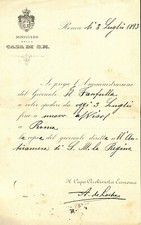 MINISTERO
CASA DI S.M.
Roma li 2 Luglio 1893
Si prega l'Amministrazione
del Giornale Il Fanfulla
a voler spedire da oggi 3 Luglio
fino a nuovo avviso
a Roma
la copia del giornale diretta M' An
ticamera di S. M. la Regina
Il Capo